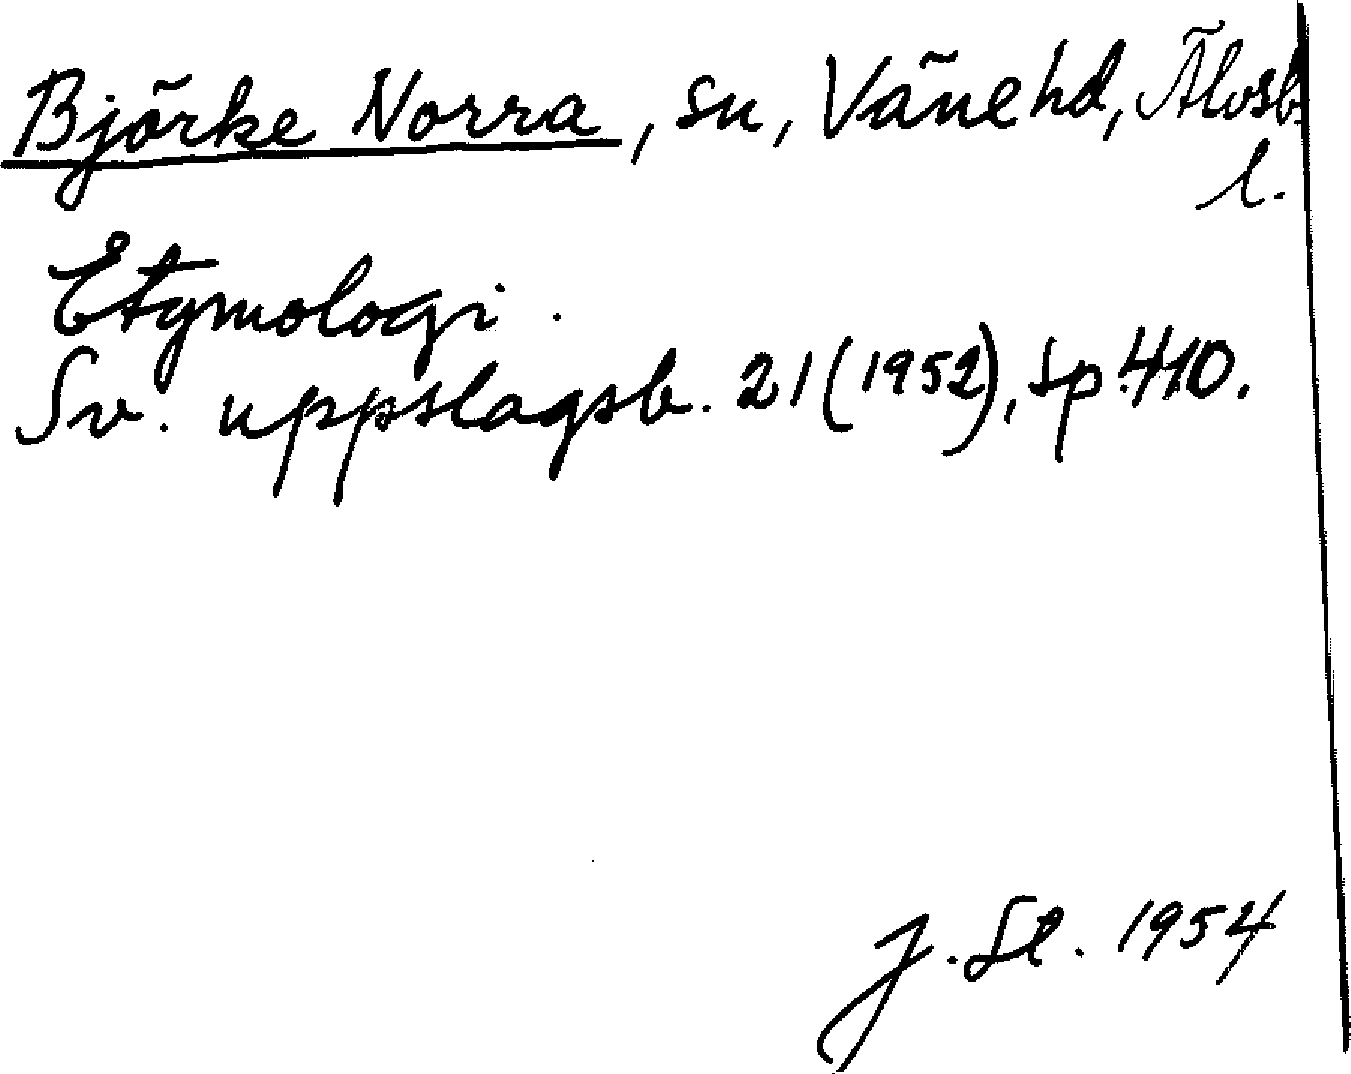 Björke Norra, sn, Väne hd, Älvsb.
l.
Etymologi.
Sv. uppslagsb. 21 (1952), sp. 410.
J. Sl. 1954